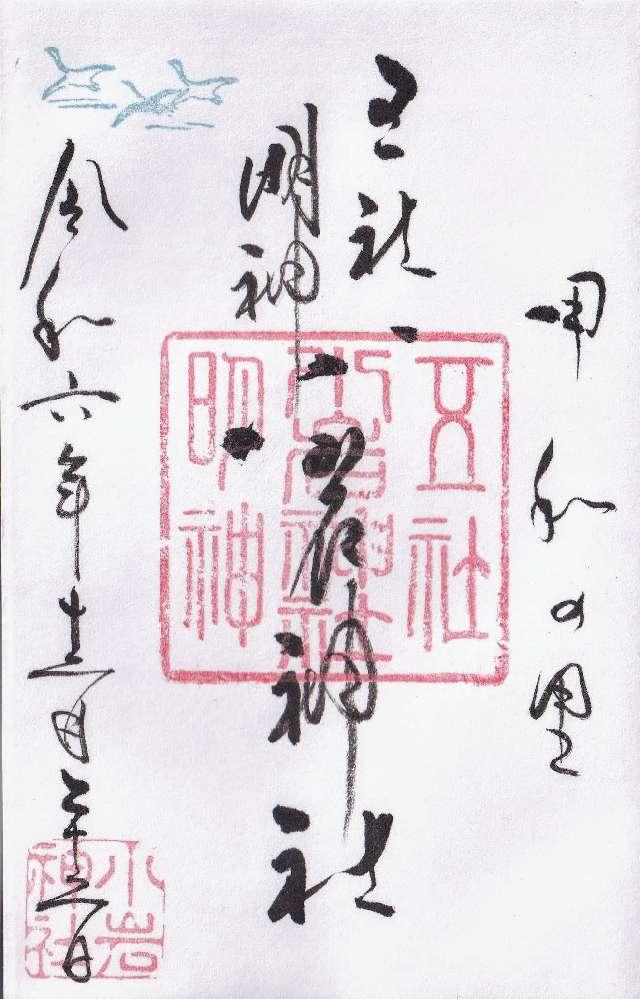 甲和の里
五社
明神
小岩神社
令和六年十二月
五社
小岩神社
明神
小岩
神社